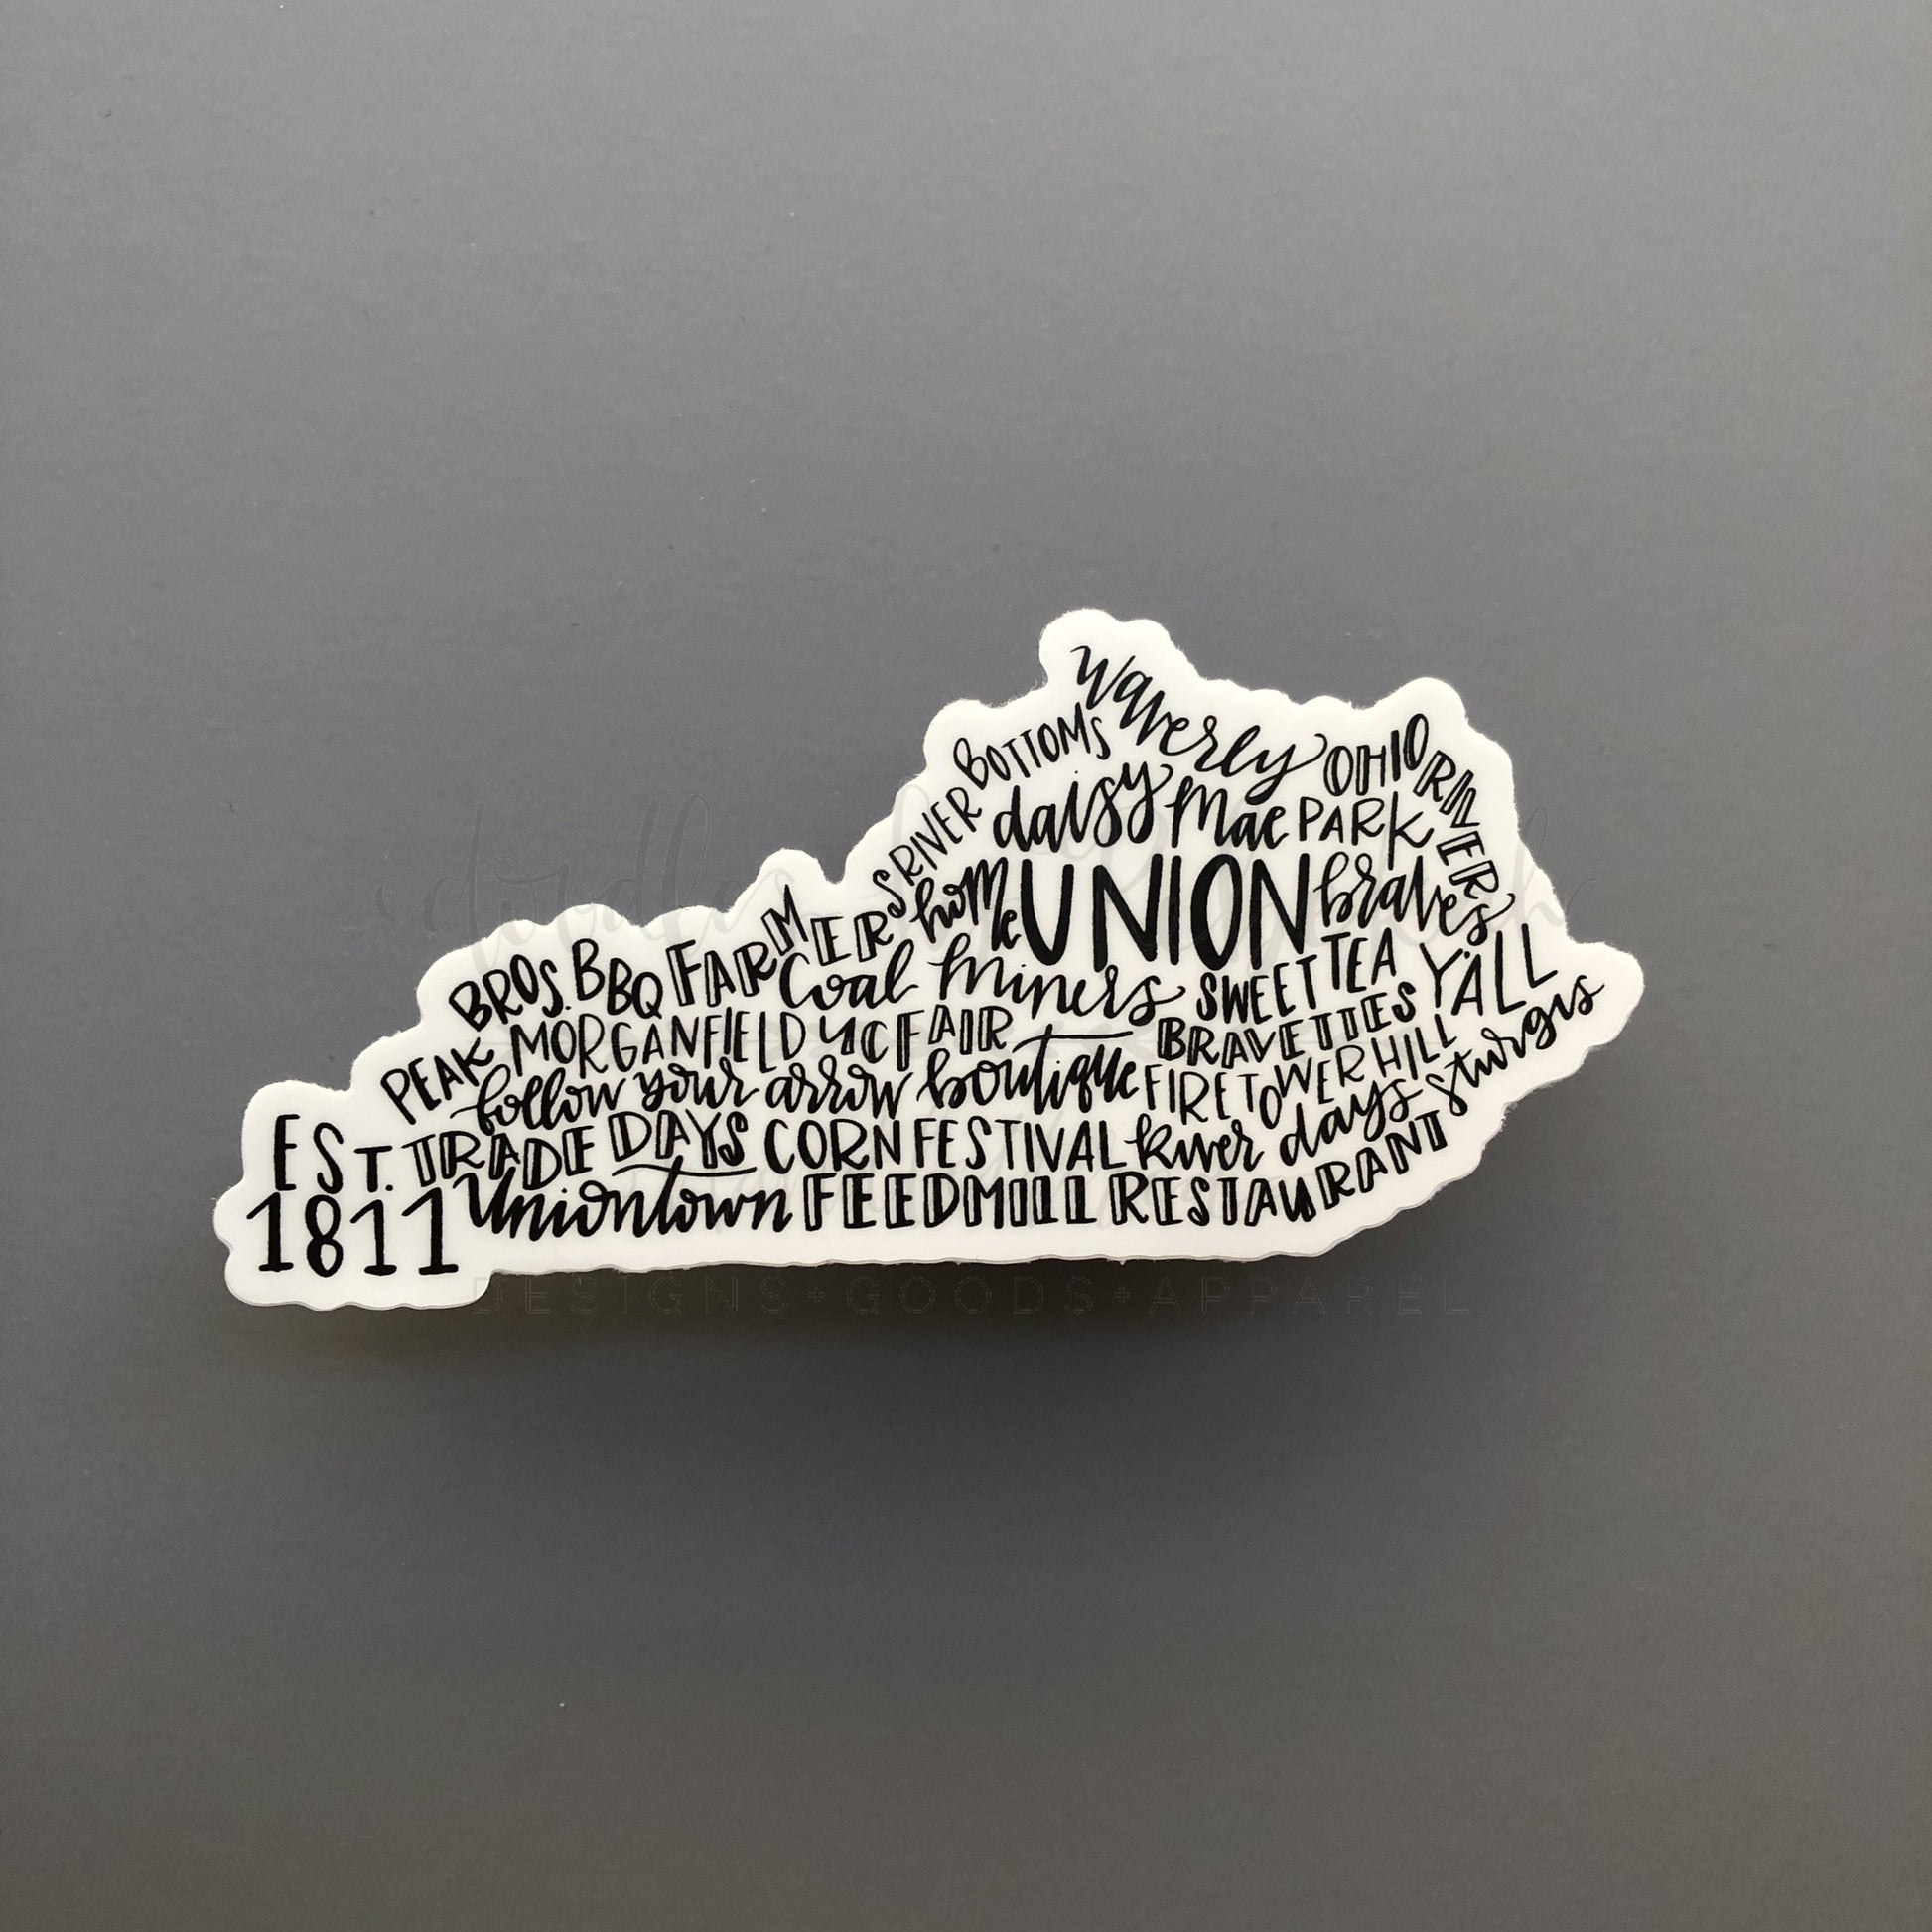 Waverly
RIVER BOTTOMS
OHIO RIVER
daisy Mae PARK
home UNION braves
PEAK BROS. BBQ FARMERS
Coal Miners SWEET TEA Y'ALL
MORGANFIELD UCFAIR BRAVETTES
follow your arrow boutique FIRE TOWER HILL sturgis
EST. TRADE DAYS CORN FESTIVAL River days
1811 Uniontown FEEDMILL RESTAURANT
DESIGNS+GOODS+APPAREL